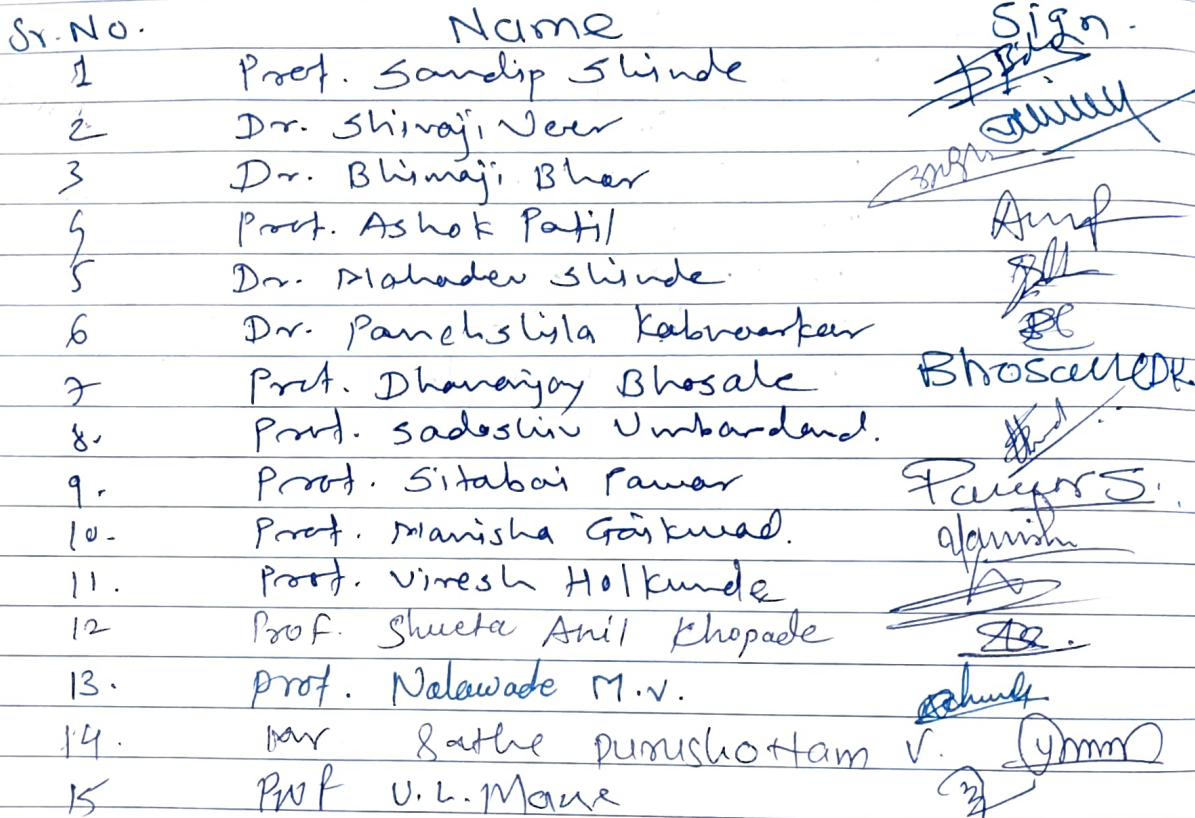 Sr. No. Name Sign.
1 Prof. Sandip Shinde
2 Dr. Shivaji Veer
3 Dr. Bhimaji Bhor
4 Prof. Ashok Patil
5 Dr. Mahadev Shinde
6 Dr. Panchshila Kabnoorkar
7 Prof. Dhananjay Bhosale Bhosale DK.
8. Prof. Sadashiv Umbardand.
9. Prof. Sitabai Pawar Pawar S.
10. Prof. Manisha Gaikwad. Manisha
11. Prof. Viresh Holkunde
12 Prof. Shweta Anil Khopade
13. Prof. Nalawade M.V.
14. Sathe Purushottam V.
15 Prof U.L. Mane